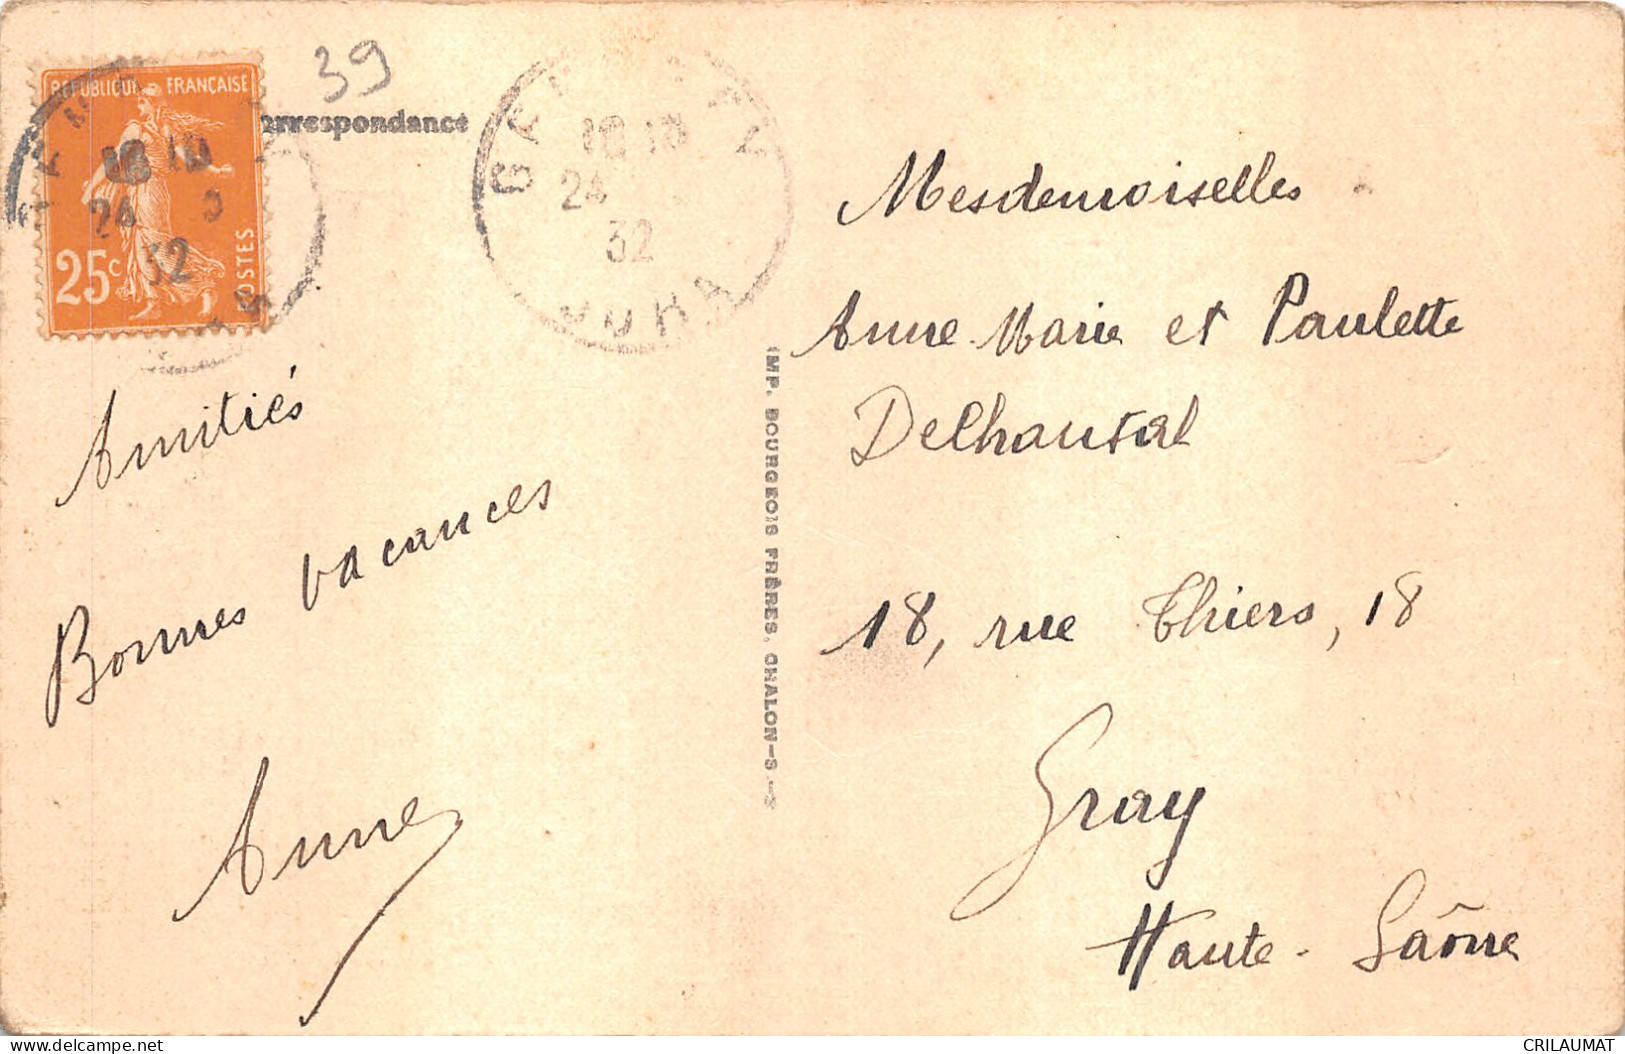 39
REPUBLIQUE FRANÇAISE
25c
POSTES
orrespondance
18 10
24
32
JURA
Amitiés
Bonnes vacances
Anne
IMP. BOURGEOIS FRÈRES, CHALON-S.-S
Mesdemoiselles
Anne-Marie et Paulette
Delhautal
18, rue Thiers, 18
Gray
Haute-Saône
CRILAUMAT